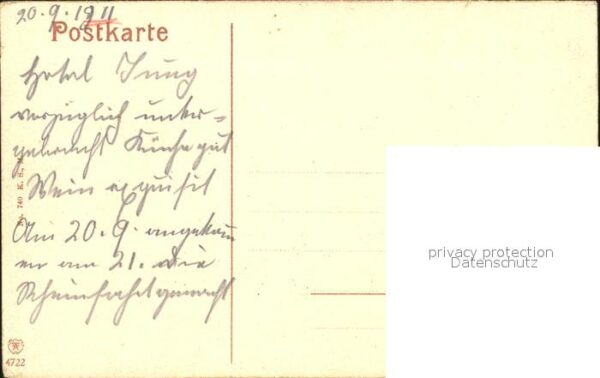 20.9.1911
Postkarte
Hotel Jung
vorzüglich unter=
gebracht Küche gut
Wein exquisit
Am 20.9. angekom
en am 21. die
Rheinfahrt gemacht
No. 740 K. S.
4722
privacy protection
Datenschutz